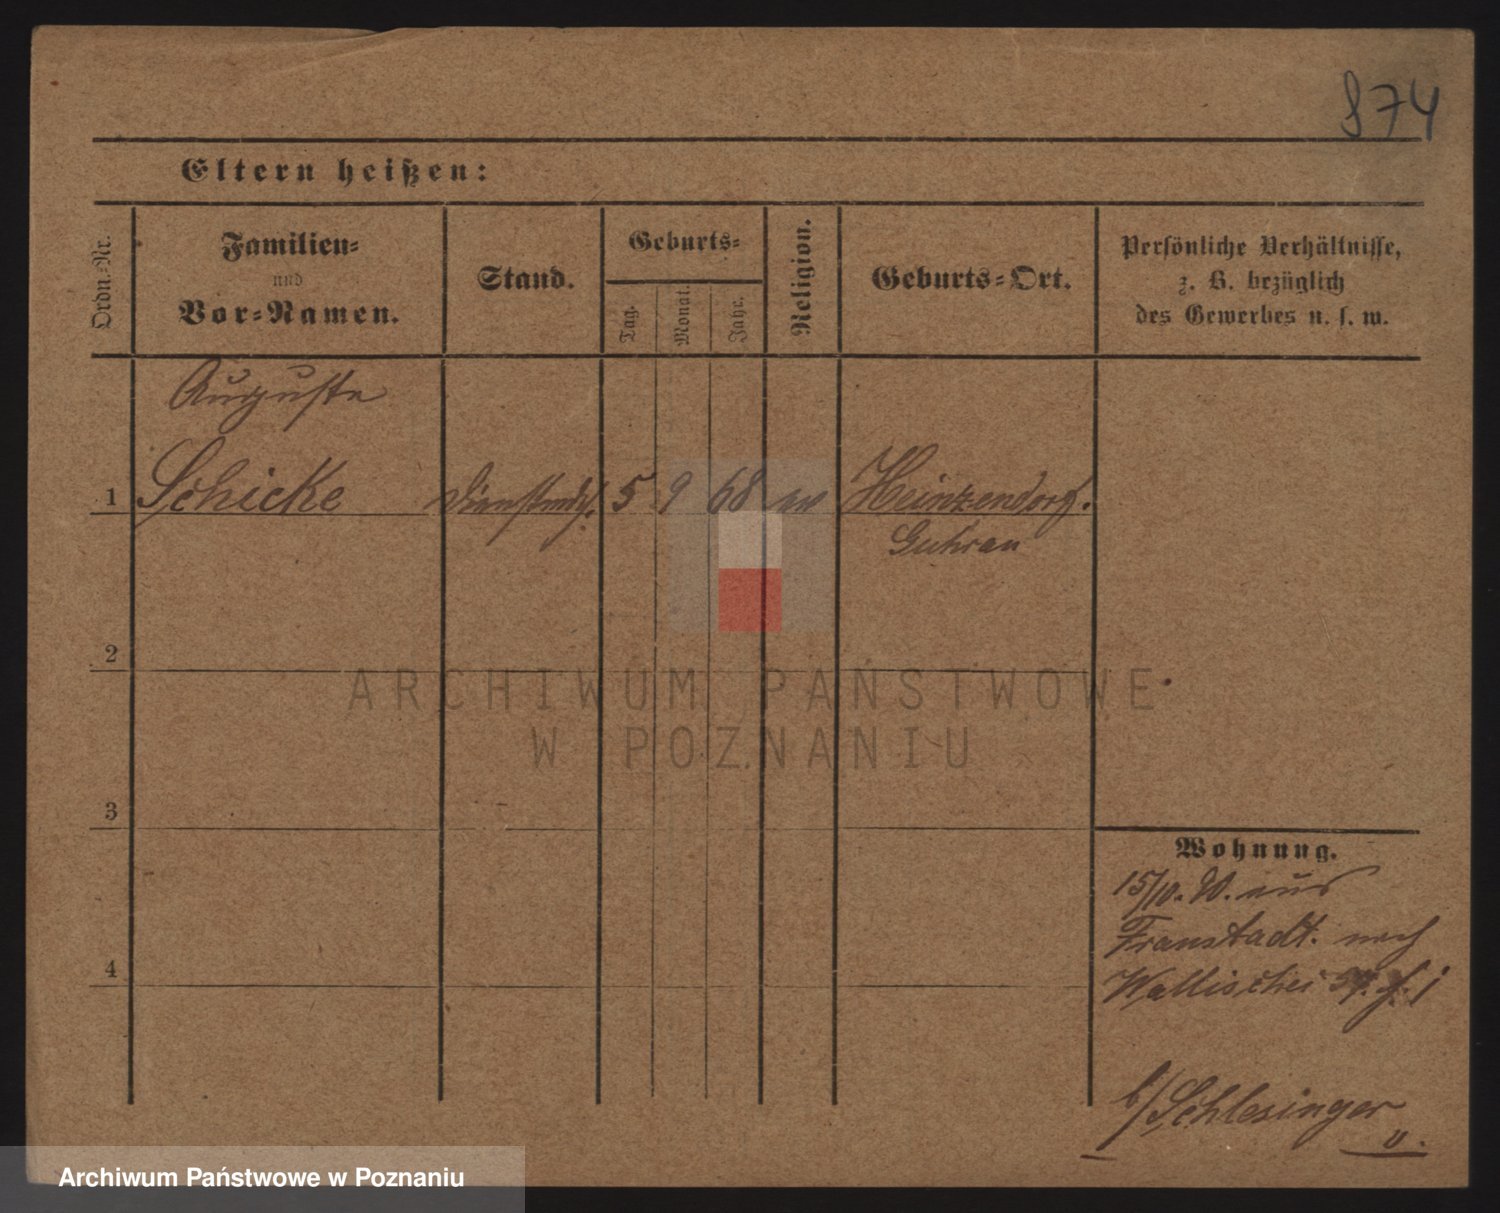 874
Eltern heißen:
Ordn.-Nr.
Familien-
und
Vor-Namen.
Stand.
Geburts-
Tag.
Monat.
Jahr.
Religion.
Geburts-Ort.
Persönliche Verhältnisse,
z. B. bezüglich
des Gewerbes u. s. w.
Auguste
1 Schicke Dienstmdch. 5 9 68 ev Heinzendorf.
Guhrau
2
3
4
Wohnung.
15/10. 90. aus
Fraustadt. nach
Wallischei
b/Schlesinger
ARCHIWUM PAŃSTWOWE
W POZNANIU
Archiwum Państwowe w Poznaniu